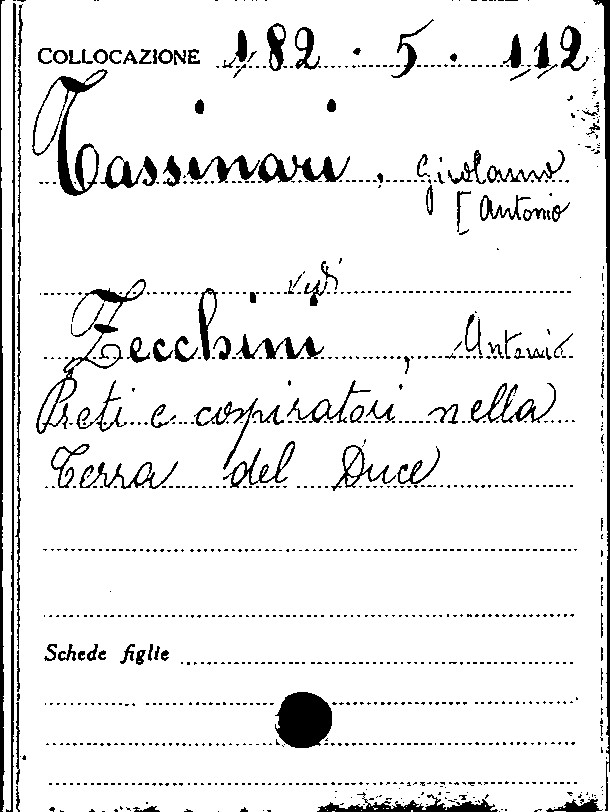 COLLOCAZIONE 182 . 5 . 112
Tassinari, Girolamo
[Antonio
vedi
Zecchini, Antonio
Preti e cospiratori nella
Terra del Duce
Schede figlie